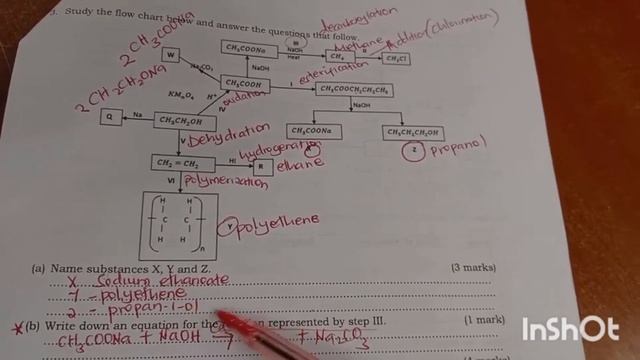 3. Study the flow chart below and answer the questions that follow.
decarboxylation
2CH3COONa
W
Na2CO3
CH3COONa
III
NaOH
Heat
Methane
CH4
II
Addition (chlorination)
CH3Cl
2CH3CH2ONa
NaOH
CH3COOH
I
esterification
CH3COOCH2CH2CH3
KMnO4
H+
oxidation
IV
NaOH
Q
Na
CH3CH2OH
CH3COONa
CH3CH2CH2OH
V
Dehydration
X
Z
propanol
hydrogenation
CH2 = CH2
H2
R
ethane
VI
polymerization
H H
C C
H H
n
Y
polyethene
(a) Name substances X, Y and Z. (3 marks)
X Sodium ethanoate
Y - polyethene
Z - propan-1-ol
*(b) Write down an equation for the represented by step III. (1 mark)
CH3COONa + NaOH + Na2CO3
InShot